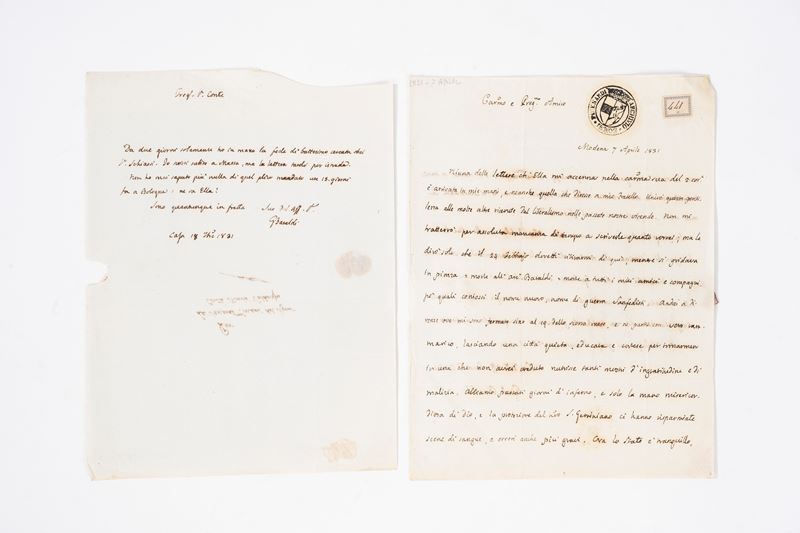 Preg. Sr. Conte
Da due giorni solamente ho in mano la fede di battesimo cercata dei
Sr. Schiassi. Io scrissi subito a Massa, ma la lettera tardò per istrada.
Non ho mai saputo più nulla di quel plico mandato un 15. giorni
fa a Bologna: ne sa Ella?
Sono quantunque in fretta Suo Dd. aff. S.
GBaraldi
Casa 18 1831
1831 - 7 Aprile
Carmo e Preg. Amico
441
Modena 7 Aprile 1831
Niuna delle lettere ch' Ella mi accenna nella carma sua del 2 corr
è arrivata in mie mani, e neanche quella diretta a mio fratello. Unirò questa genti
lezza alle molte altre ricevute dal liberalismo nelle passate nostre vicende. Non mi
tratterrò per assoluta mancanza di tempo a scrivere quanto vorrei; ma le
dirò solo che il 24 febbrajo dovetti ritirarmi di qui, mentre si gridava
in piazza = morte all' arc. Baraldi = morte a tutti i nostri amici e compagni
pe' quali coniossi il nome nuovo, nome di guerra Sanfedisti. Andai a
ove mi sono fermato sino al 29. dello scorso mese, e ne partii con vero ram-
marico, lasciando una città quieta, educata e cortese per ritornarmene
in una che non avrei creduto nutrisse tanti mostri d' ingratitudine e di
malizia. Abbiamo passati giorni d' inferno, e solo la mano misericor
diosa di Dio, e la protezione del nro S. Geminiano ci hanno risparmiate
scene di sangue, e orrori anche più gravi. Ora lo Stato è tranquillo,